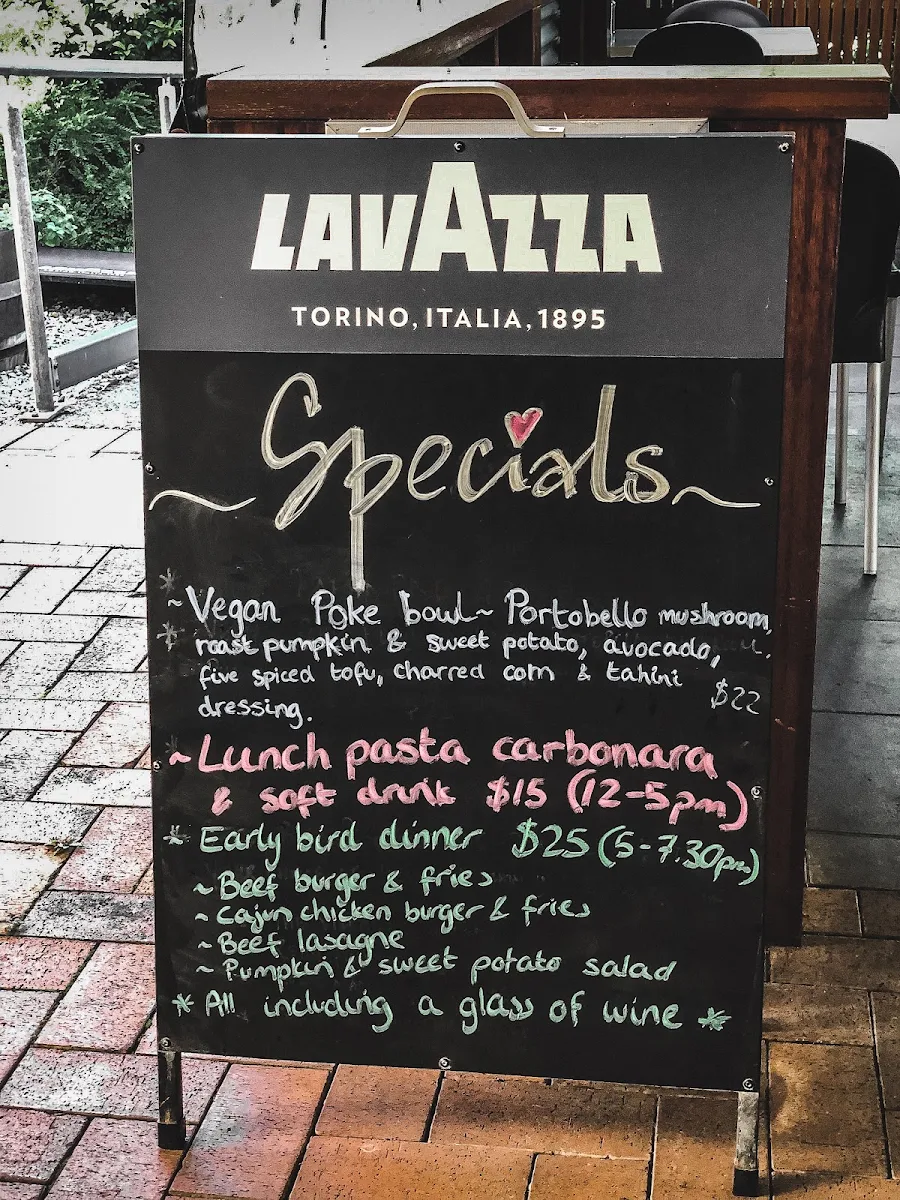 LAVAZZA
TORINO, ITALIA, 1895
Specials
~ Vegan Poke bowl ~ Portobello mushroom,
roast pumpkin & sweet potato, avocado,
five spiced tofu, charred corn & tahini
dressing. $22
~ Lunch pasta carbonara
& soft drink $15 (12-5pm)
* Early bird dinner $25 (5-7.30pm)
~ Beef burger & fries
~ Cajun chicken burger & fries
~ Beef lasagne
~ Pumpkin & sweet potato salad
* All including a glass of wine *